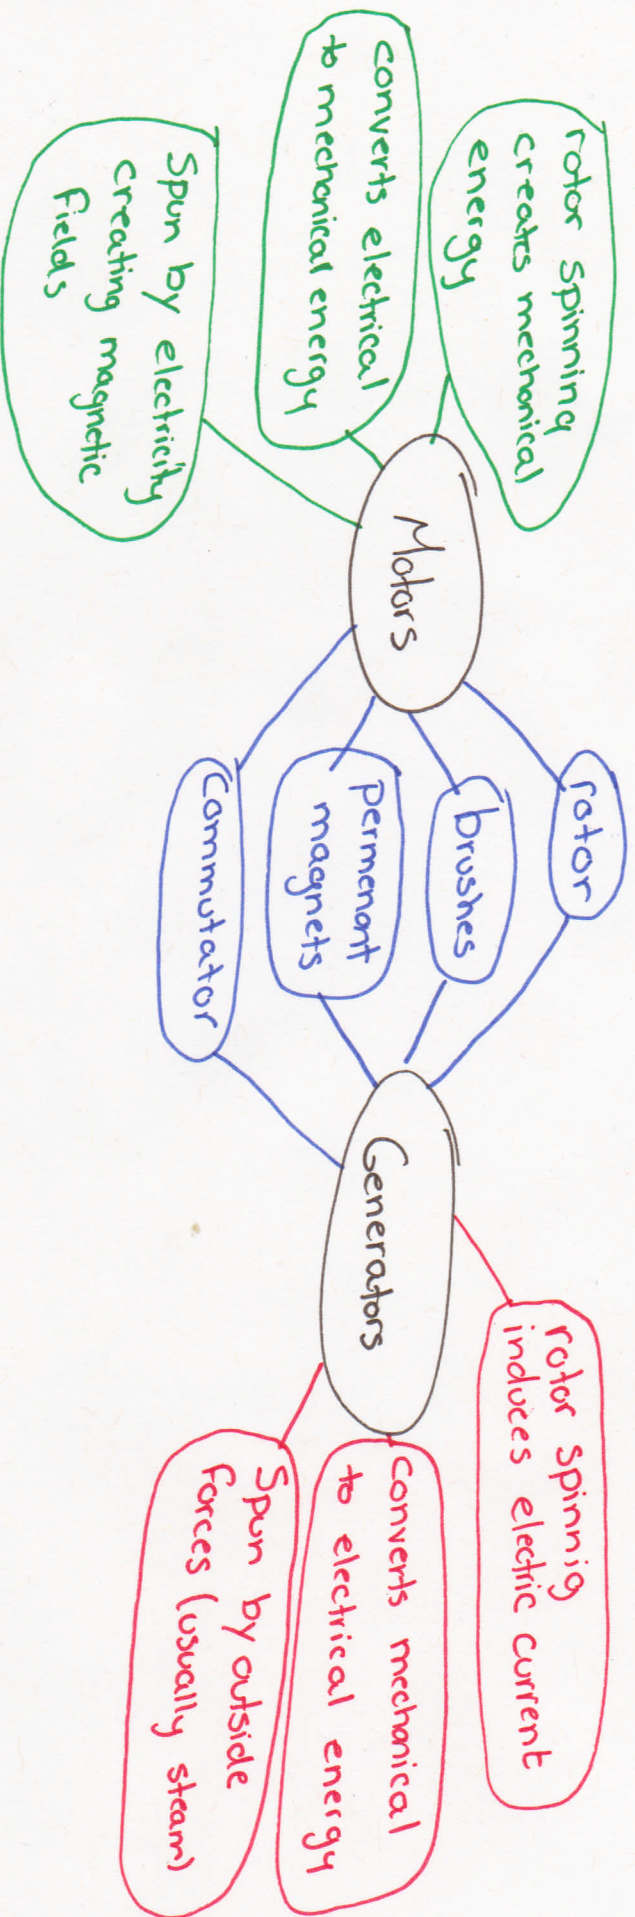 rotor spinning
creates mechanical
energy
converts electrical
to mechanical energy
Spun by electricity
creating magnetic
fields
Motors
rotor
brushes
permenant
magnets
Commutator
Generators
rotor spinnig
induces electric current
converts mechanical
to electrical energy
Spun by outside
forces (usually steam)